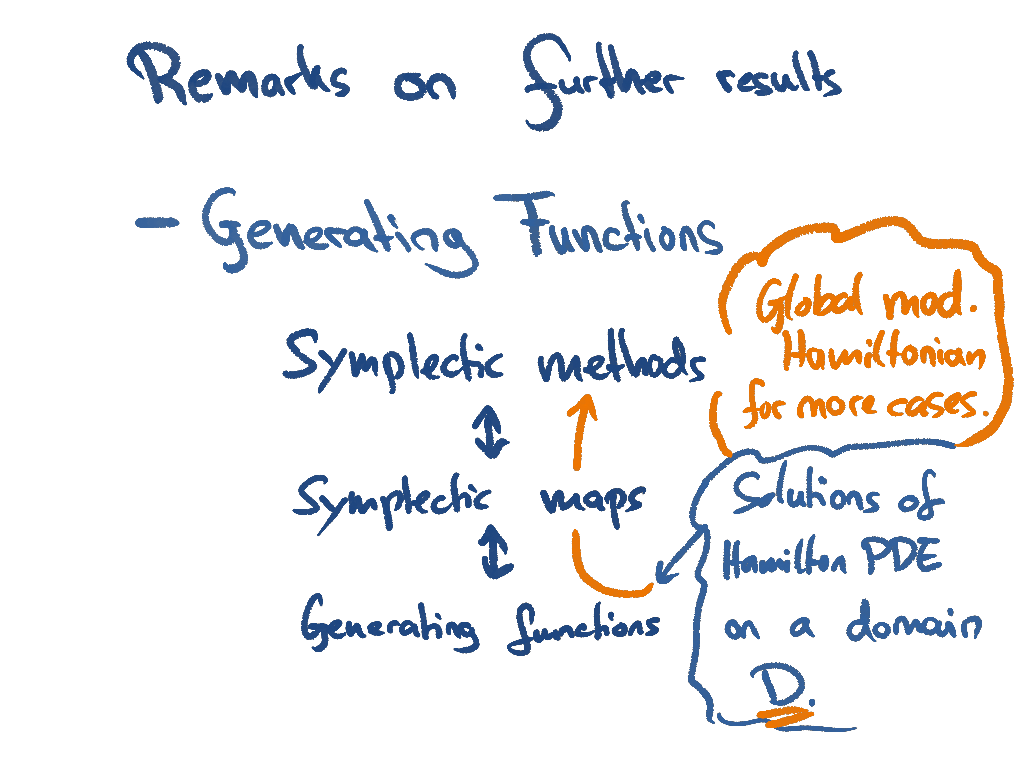 Remarks on further results
- Generating Functions
Symplectic methods
Symplectic maps
Generating functions
Global mod.
Hamiltonian
for more cases.
Solutions of
Hamilton PDE
on a domain
D.